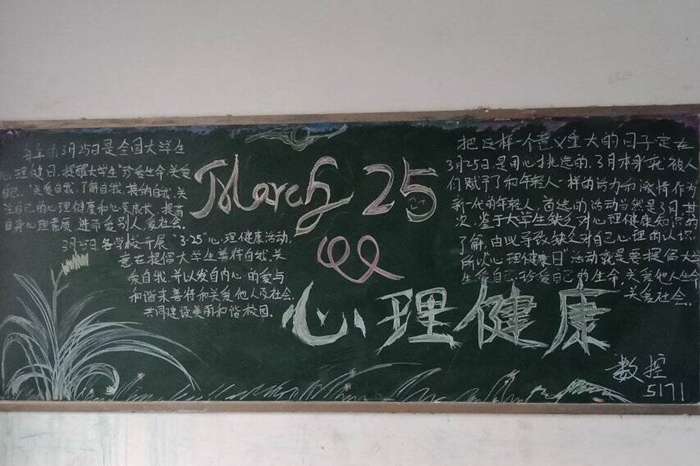 每年的3月25日是全国大学生
心理健日,提醒大学生"珍爱生命关爱
自己"关爱自我,了解自我,接纳自我,关
注自己的心理健康和心灵成长,提高
自身心理素质,进而爱别人,爱社会。
3月25日各学校开展"3·25"心理健康活动,
意在提倡大学生善待自我,关
爱自我,并以发自内心的爱与
和谐来善待和关爱他人及社会,
共同建设美丽和谐校园.
March 25
心理健康
把这样一个意义重大的日子定在
3月25日是用心挑选的,3月本身就被人
们赋予了和年轻人一样的活力和激情作
新一代的年轻人,首选的活动当然是3月其
次,鉴于大学生缺乏对心理健康知识的
了解,由此导致缺乏对自己心理的认识
所以"心理健康日"活动就是要提倡大
生爱自己,珍爱自己的生命,关爱他人
关爱社会.
数控
5171